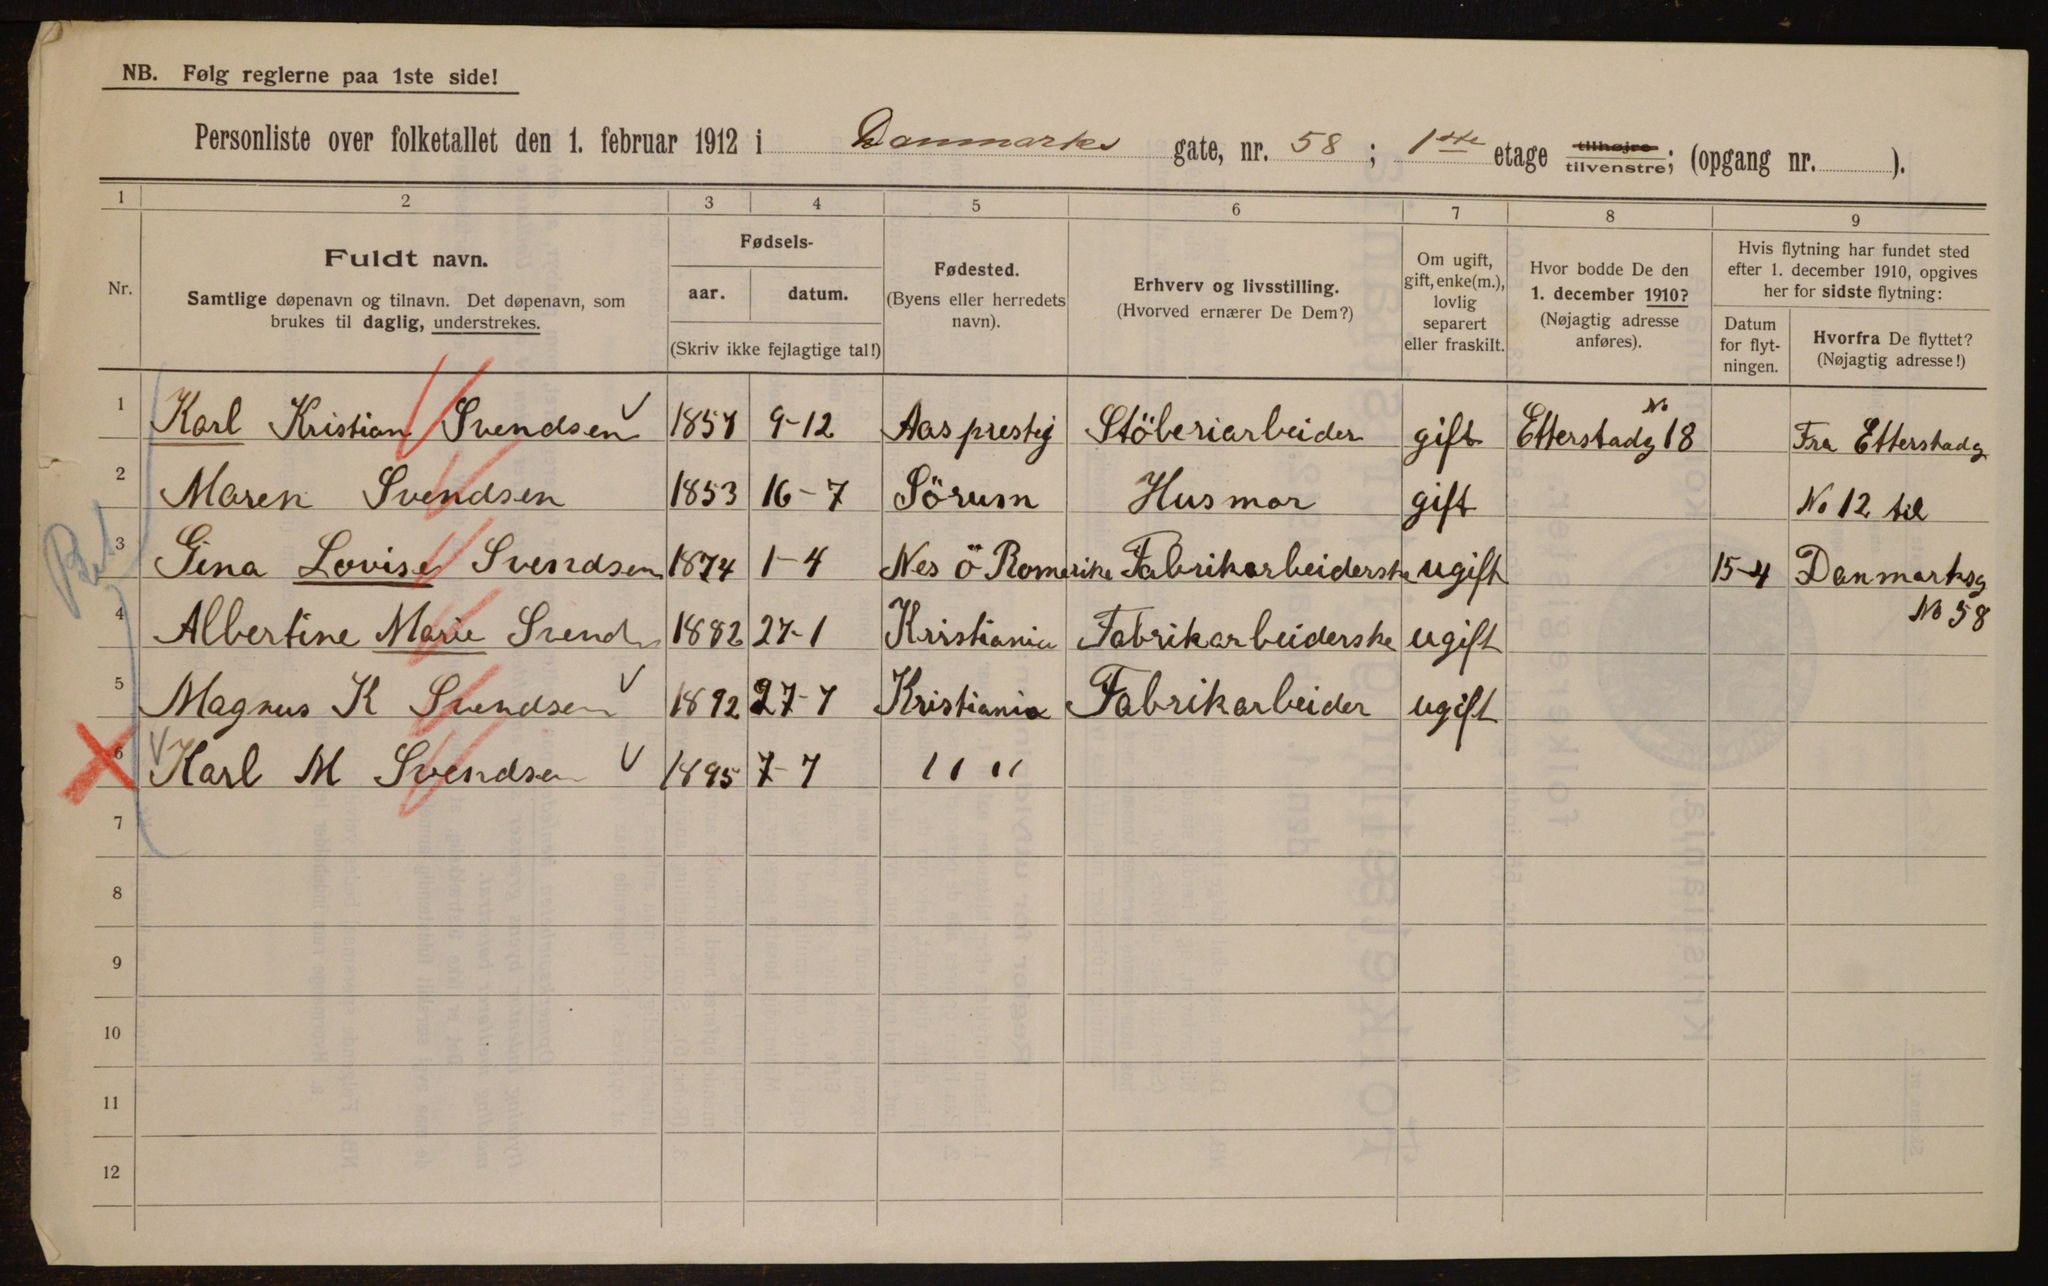 NB. Følg reglerne paa 1ste side!
Personliste over folketallet den 1. februar 1912 i Danmarks gate, nr. 58 ; 1ste etage tilhøjre tilvenstre; (opgang nr. ).
1 2 3 4 5 6 7 8 9
Nr.
Fuldt navn.
Samtlige døpenavn og tilnavn. Det døpenavn, som
brukes til daglig, understrekes.
Fødsels-
aar. datum.
(Skriv ikke fejlagtige tal!)
Fødested.
(Byens eller herredets
navn).
Erhverv og livsstilling.
(Hvorved ernærer De Dem?)
Om ugift,
gift, enke(m.),
lovlig
separert
eller fraskilt.
Hvor bodde De den
1. december 1910?
(Nøjagtig adresse
anføres).
Hvis flytning har fundet sted
efter 1. december 1910, opgives
her for sidste flytning:
Datum
for flyt-
ningen.
Hvorfra De flyttet?
(Nøjagtig adresse!)
1 Karl Kristian Svendsen 1857 9-12 Aas prestej Stöberiarbeider gift Etterstadg No 18 Fra Etterstadg
2 Maren Svendsen 1853 16-7 Sörum Husmor gift No 12 til
3 Gina Lovise Svendsen 1874 1-4 Nes ö Romerike Fabrikarbeiderske ugift 15-4 Danmarksg
No 58
4 Albertine Marie Svends 1882 27-1 Kristiania Fabrikarbeiderske ugift
5 Magnus K Svendsen 1892 27-7 Kristiania Fabrikarbeider ugift
6 Karl M Svendsen 1895 7-7 " "
7
8
9
10
11
12